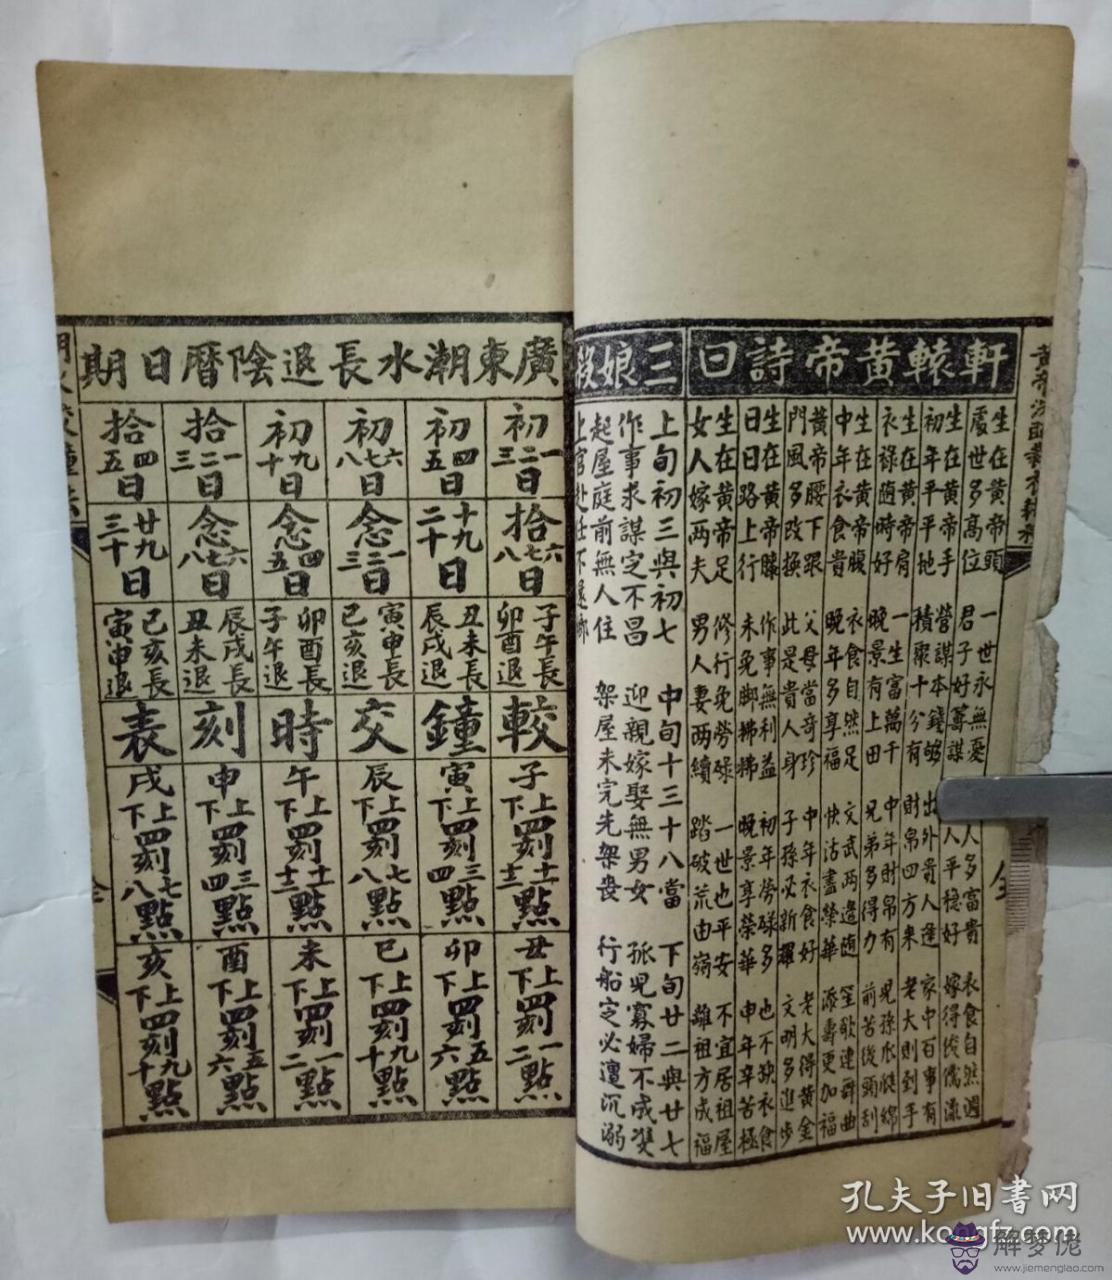 黃帝
全
軒轅黃帝詩曰
生在黃帝頭 一世永無憂 人多富貴 衣食自然週
處世多高位 君子好籌謀 人平穩好 嫁得俊儒流
生在黃帝手 營謀本錢够 出外貴人逢 家中百事有
初年平平地 積聚十分有 財帛四方来 老大則到手
生在黃帝肩 一生富萬千 中年財帛有 児孫瓜瓞綿
衣祿随時好 晚景有上田 兄弟多得力 前苦後頭刮
生在黃帝腹 衣食自然足 文武两邊随 笙歌連舞曲
中年衣食貴 晚年多享福 快活盡榮華 添壽更加福
黃帝腰下跟 父母當奇珍 中年衣食好 老大得黃金
門風多改換 此是貴人身 子孫必新耀 文明多進步
生在黃帝膝 作事無利益 初年勞碌多 也不缺衣食
日日路上行 未免脚拂拂 晚景享榮華 申年辛苦極
生在黃帝足 修行免勞碌 一世也平安 不宜居祖屋
女人嫁两夫 男人妻两續 踏破荒由嶺 離祖方成福
三娘殺
上旬初三與初七 中旬十三十八當 下旬廿二與廿七
作事求謀定不昌 迎親嫁娶無男女 孤児寡婦不成雙
起屋庭前無人住 架屋未完先架丧 行船定必遭沉溺
上官赴任不還鄉
廣東潮水長退陰曆日期
初一二三日 拾六七八日 子午長卯酉退
初四五日 十九二十日 丑未長辰戌退
初六七八日 念一二三日 寅申長巳亥退
初九十日 念四五日 卯酉長子午退
拾一二三日 念六七八日 辰戌長丑未退
拾四五日 廿九三十日 巳亥長寅申退
較鐘交時刻表
子上四刻十一下四刻十二點
丑上四刻一下四刻二點
寅上四刻三下四刻四點
卯上四刻五下四刻六點
辰上四刻七下四刻八點
巳上四刻九下四刻十點
午上四刻十一下四刻十二點
未上四刻一下四刻二點
申上四刻三下四刻四點
酉上四刻五下四刻六點
戌上四刻七下四刻八點
亥上四刻九下四刻十點
全
孔夫子旧书网
www.kongfz.com
解梦佬
www.jiemenglao.com